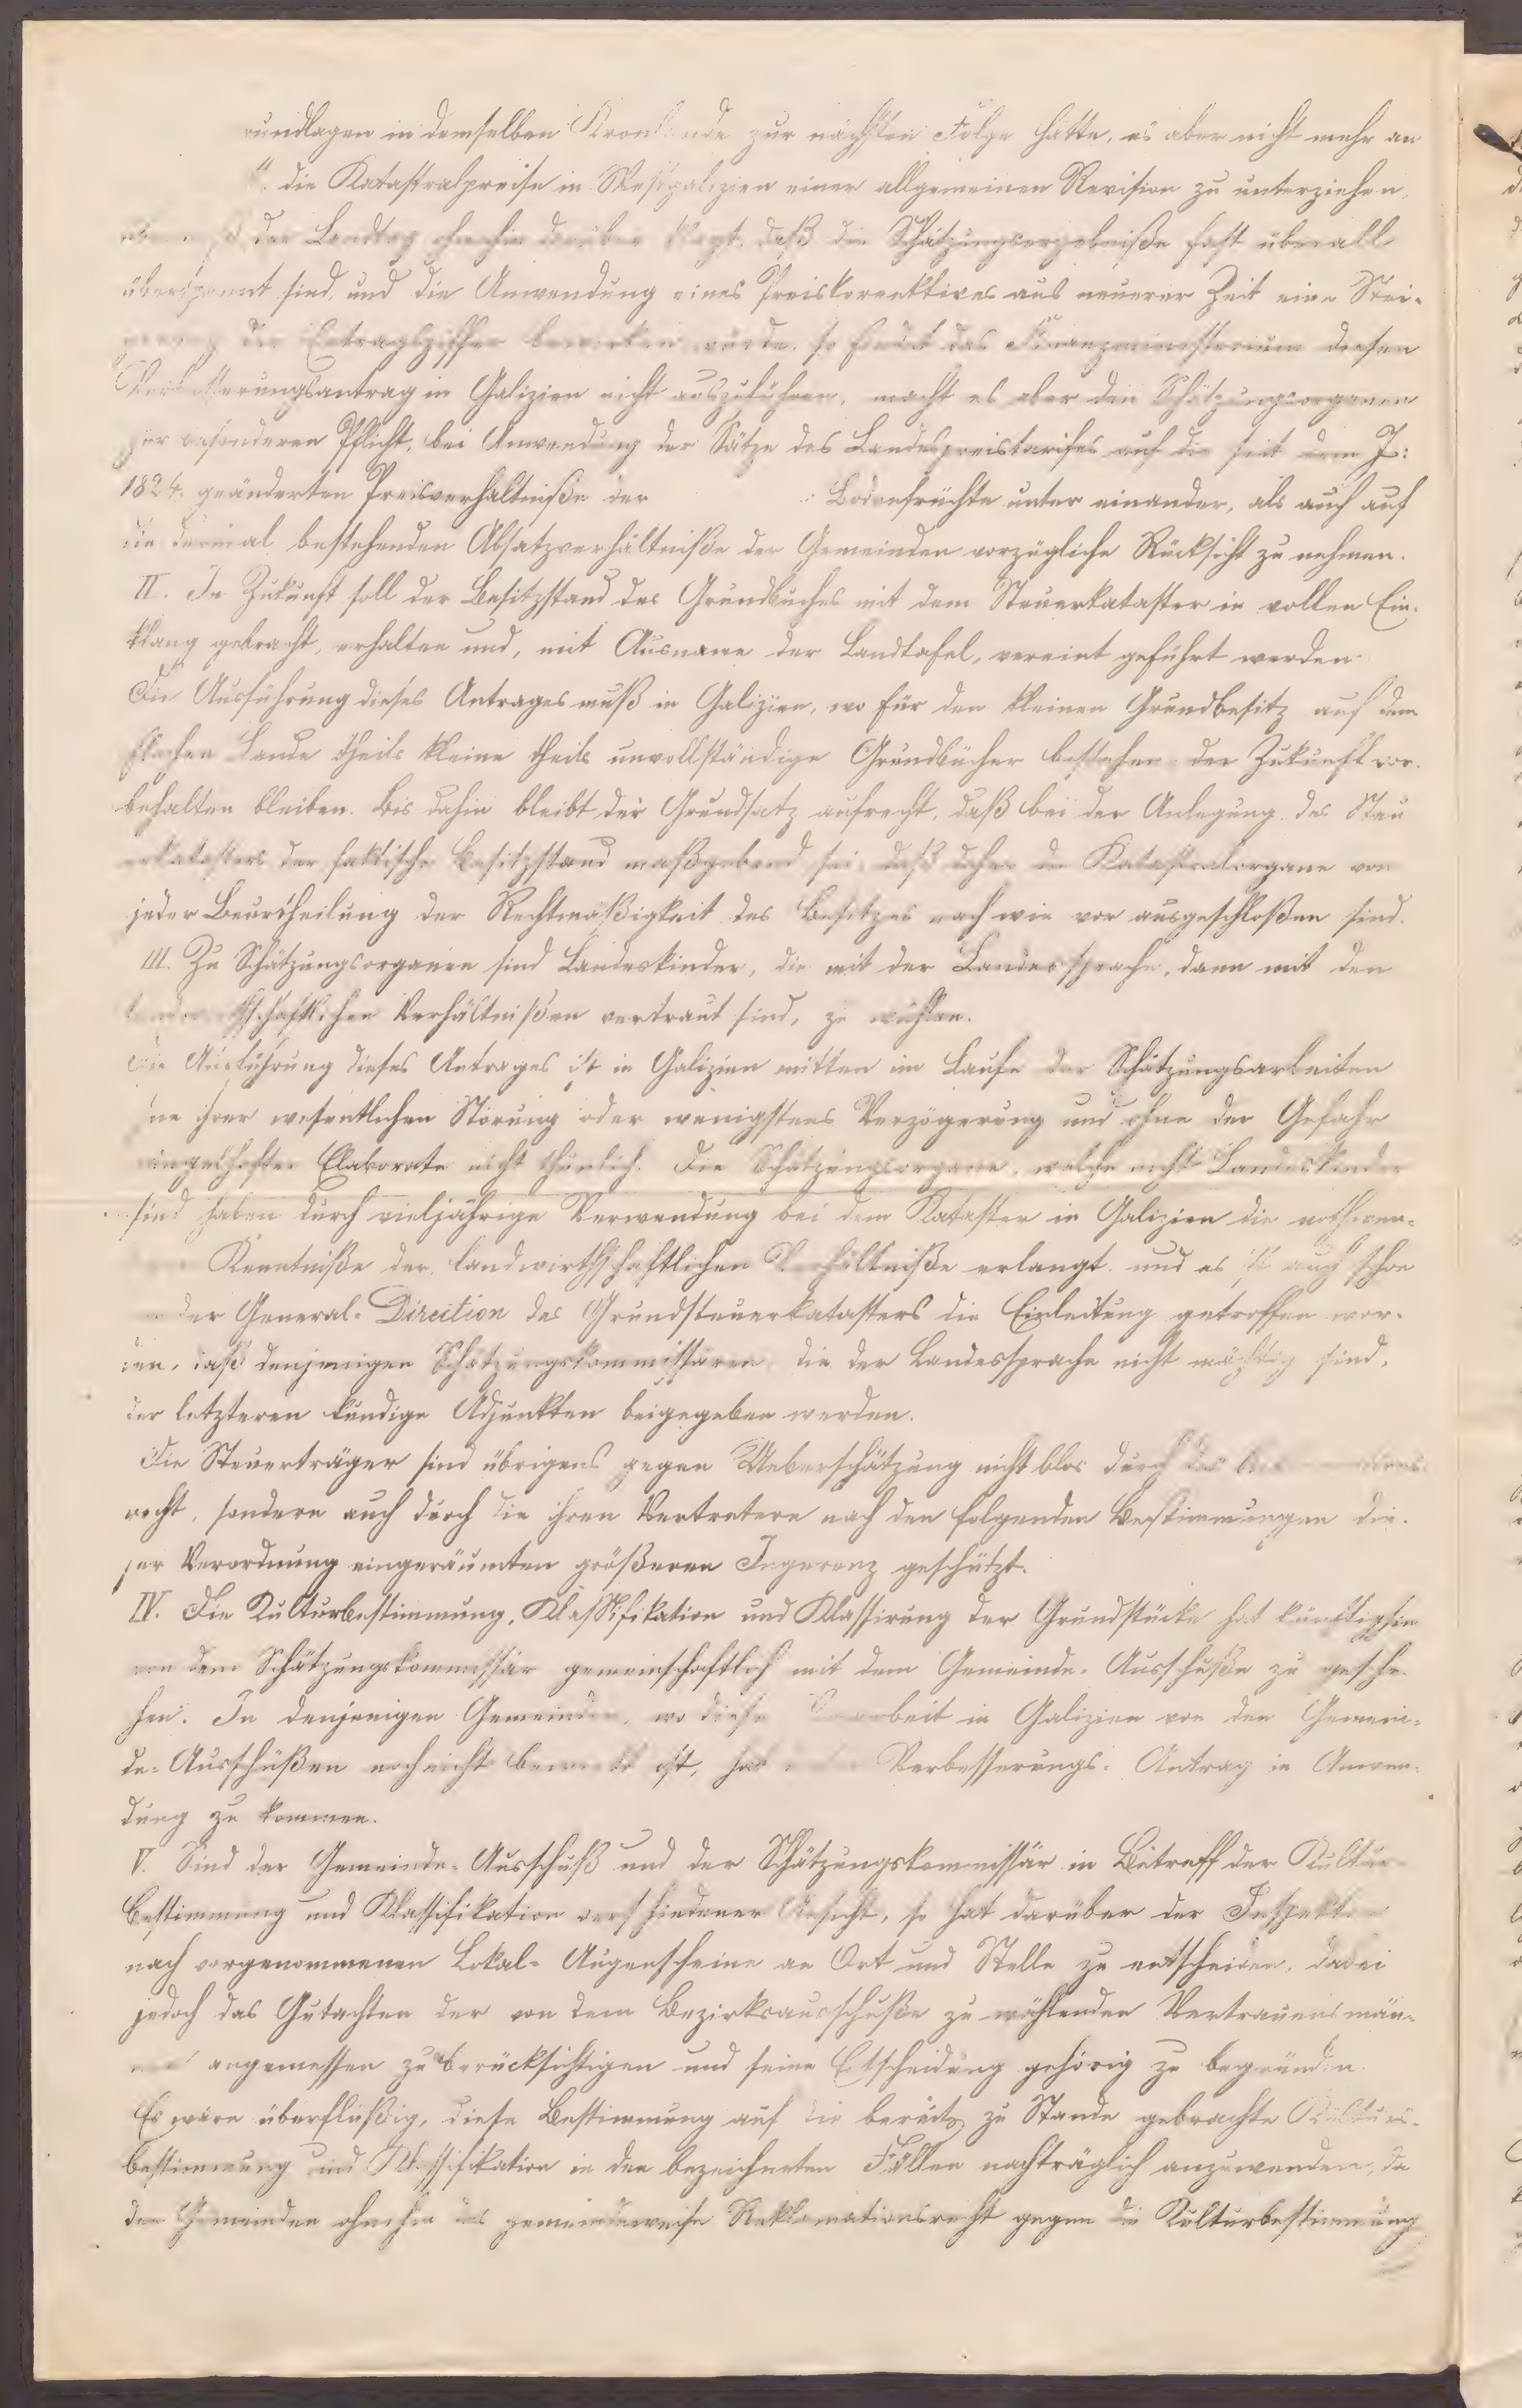 rundlagen in demselben Kronlande zur nächsten Folge hatte, es aber nicht mehr an
die Katastralpreise in Westgalizien einer allgemeinen Revision zu unterziehen,
der Landtag ohnehin darüber klagt, daß die Schätzungsergebniße fast überall
überspannt sind, und die Anwendung eines Preiskorrektives aus neuerer Zeit eine Stei-
gerung der Ertragsziffer bewirken würde, so findet das Finanzministerium diesen
Verbesserungsantrag in Galizien nicht auszuführen, macht es aber den Schätzungsorganen
zur besonderen Pflicht, bei Anwendung der Sätze des Landespreistarifes auf die seit dem J:
1824. geänderten Preisverhältniße der Bodenfrüchte unter einander, als auch auf
die dermal bestehenden Absatzverhältniße der Gemeinden vorzügliche Rücksicht zu nehmen.
II. In Zukunft soll der Besitzstand des Grundbuches mit dem Steuerkataster in vollen Ein-
klang gebracht, erhalten und, mit Ausname der Landtafel, vereint geführt werden
Die Ausführung dieses Antrages muß in Galizien, wo für den kleinen Grundbesitz auf dem
flachen Lande theils kleine theils unvollständige Grundbücher bestehen der Zukunft vor-
behalten bleiben. Bis dahin bleibt der Grundsatz aufrecht, daß bei der Anlegung des Steu
erkatasters der faktische Besitzstand maßgebend sei, daß daher die Katastralorgane von
jeder Beurtheilung der Rechtmäßigkeit des Besitzes nach wie vor ausgeschloßen sind.
III. Zu Schätzungsorganen sind Landeskinder, die mit der Landessprache, dann mit den
landwirthschaftlichen Verhältnißen vertraut sind, zu wählen.
Die Ausführung dieses Antrages ist in Galizien mitten im Laufe der Schätzungsarbeiten
ne ihrer wesentlichen Störung oder wenigstens Verzögerung und ohne der Gefahr
mangelhafter Elaborate nicht thunlich. Die Schätzungsorgane, welche nicht Landeskinder
sind haben durch vieljährige Verwendung bei dem Kataster in Galizien die nothwen-
Kenntniße der landwirthschaftlichen Verhältniße erlangt und es ist auch schon
der General-Direction des Grundsteuerkatasters die Einleitung getroffen wor-
den, daß denjenigen Schätzungskommissären die der Landessprache nicht mächtig sind,
der letzteren kundige Adjunkten beigegeben werden.
Die Steuerträger sind übrigens gegen Ueberschätzung nicht blos durch das
recht, sondern auch durch die ihren Vertretern nach den folgenden Bestimmungen die-
ser Verordnung eingeräumten größeren Ingerenz geschützt.
IV. Die Kulturbestimmung, Klassifikation und Klassirung der Grundstücke hat künftighin
von dem Schätzungskommissär gemeinschaftlich mit dem Gemeinde-Ausschuße zu gesche-
hen. In denjenigen Gemeinden, wo diese Vorarbeit in Galizien von den Gemein-
de-Ausschüßen noch nicht bewirkt ist, hat Verbesserungs-Antrag in Anwen-
dung zu kommen.
V. Sind der Gemeinde-Ausschuß und der Schätzungskommissär in Betreff der Kultur-
bestimmung und Klassifikation verschiedener Ansicht, so hat darüber der Inspektor
nach vorgenommenen Lokal-Augenscheine an Ort und Stelle zu entscheiden, dabei
jedoch das Gutachten der von dem Bezirksausschuße zu wählenden Vertrauensmän-
ner angemessen zu berücksichtigen und seine Etscheidung gehörig zu begründen.
Es wäre überflüßig, diese Bestimmung auf die bereits zu Stande gebrachte Kulturs-
bestimmung und Klassifikation in den bezeichneten Fällen nachträglich anzuwenden, da
den Gemeinden ohnehin das gemeindeweise Reklamationsrecht gegen die Kulturbestimmung